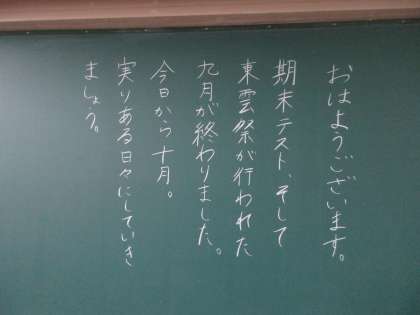 おはようございます。
期末テスト、そして
東雲祭が行われた
九月が終わりました。
今日から十月。
実りある日々にしていき
ましょう。